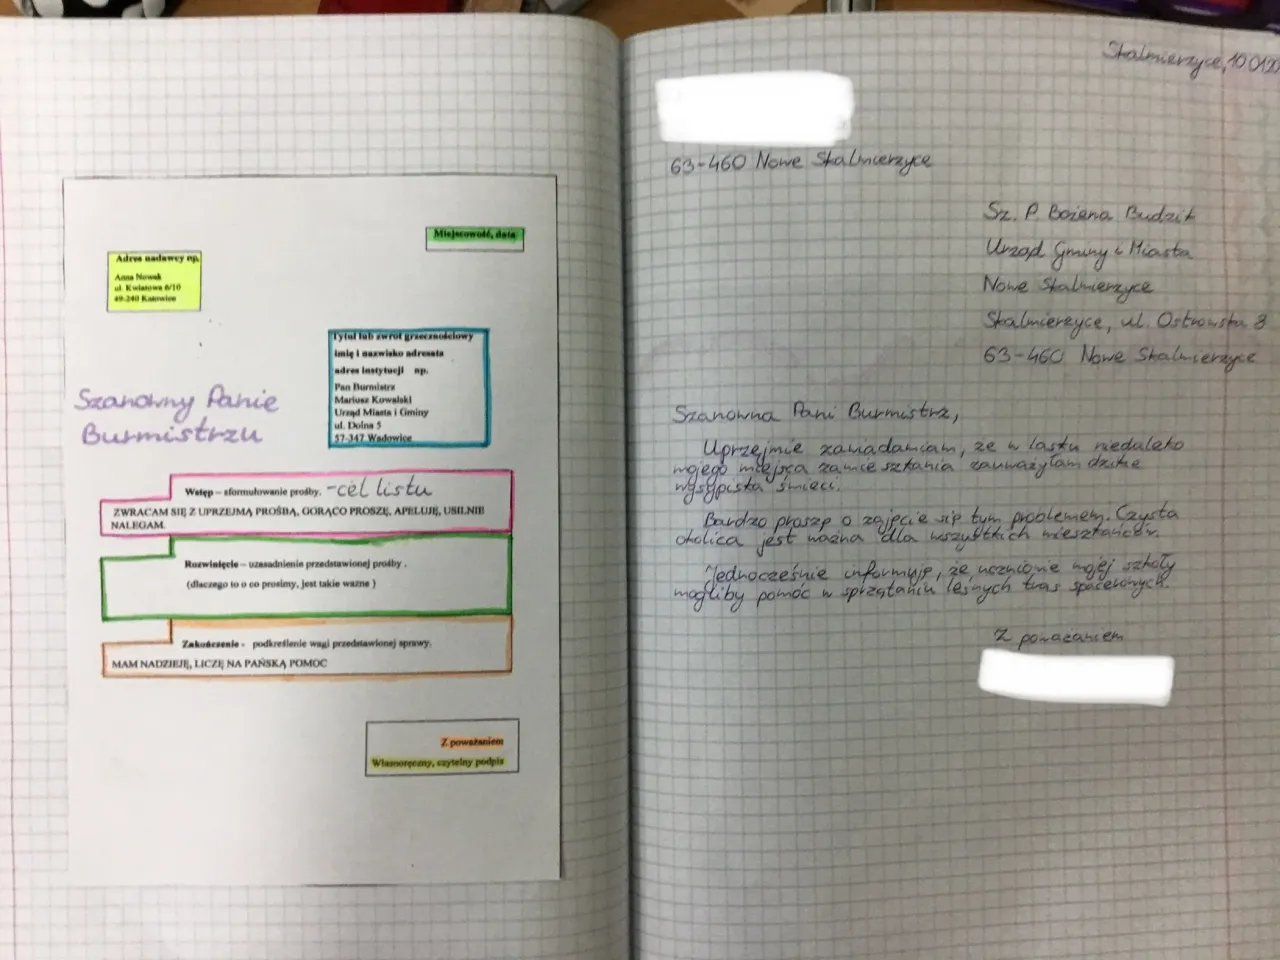 Miejscowość, data
Adres nadawcy np.
Anna Nowak
ul. Kwiatowa 8/10
49-240 Katowice
Tytuł lub zwrot grzecznościowy
imię i nazwisko adresata
adres instytucji np.
Pan Burmistrz
Mariusz Kowalski
Urząd Miasta i Gminy
ul. Dolna 5
57-347 Wadowice
Szanowny Panie
Burmistrzu
Wstęp – sformułowanie prośby. - cel listu
ZWRACAM SIĘ Z UPRZEJMĄ PROŚBĄ, GORĄCO PROSZĘ, APELUJĘ, USILNIE
NALEGAM.
Rozwinięcie – uzasadnienie przedstawionej prośby .
(dlaczego to o co prosimy, jest takie ważne )
Zakończenie - podkreślenie wagi przedstawionej sprawy.
MAM NADZIEJĘ, LICZĘ NA PAŃSKĄ POMOC
Z poważaniem
Własnoręczny, czytelny podpis
Skalmierzyce, 10.01.20
63-460 Nowe Skalmierzyce
Sz. P. Bożena Budzik
Urząd Gminy i Miasta
Nowe Skalmierzyce
Skalmierzyce, ul. Ostrowska 8
63-460 Nowe Skalmierzyce
Szanowna Pani Burmistrz,
Uprzejmie zawiadamiam, że w lasku niedaleko
mojego miejsca zamieszkania zauważyłam dzikie
wysypiska śmieci.
Bardzo proszę o zajęcie się tym problemem. Czysta
okolica jest ważna dla wszystkich mieszkańców.
Jednocześnie informuję, że uczniowie mojej szkoły
mogliby pomóc w sprzątaniu leśnych tras spacerowych.
Z poważaniem